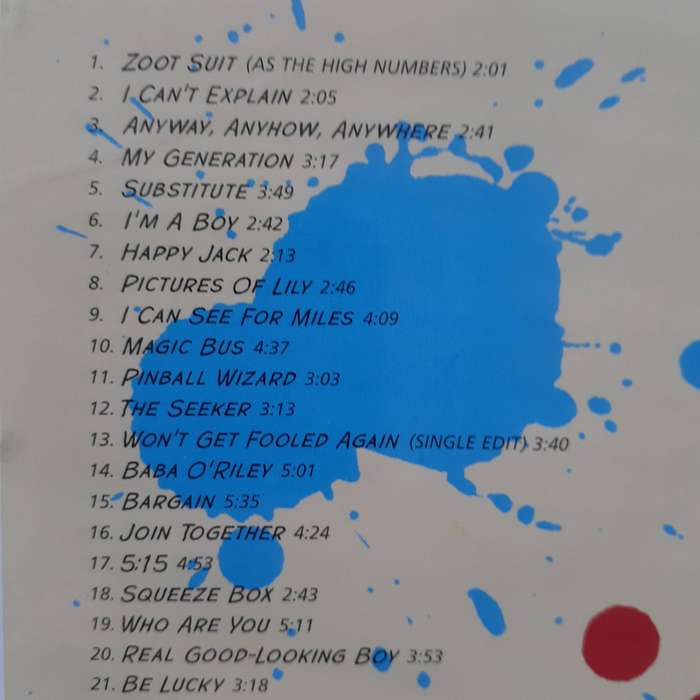 1. ZOOT SUIT (AS THE HIGH NUMBERS) 2:01
2. I CAN'T EXPLAIN 2:05
3. ANYWAY, ANYHOW, ANYWHERE 2:41
4. MY GENERATION 3:17
5. SUBSTITUTE 3:49
6. I'M A BOY 2:42
7. HAPPY JACK 2:13
8. PICTURES OF LILY 2:46
9. I CAN SEE FOR MILES 4:09
10. MAGIC BUS 4:37
11. PINBALL WIZARD 3:03
12. THE SEEKER 3:13
13. WON'T GET FOOLED AGAIN (SINGLE EDIT) 3:40
14. BABA O'RILEY 5:01
15. BARGAIN 5:35
16. JOIN TOGETHER 4:24
17. 5:15 4:53
18. SQUEEZE BOX 2:43
19. WHO ARE YOU 5:11
20. REAL GOOD-LOOKING BOY 3:53
21. BE LUCKY 3:18